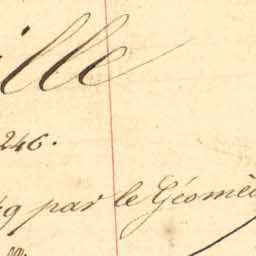 ille
246.
9 par le Géomè